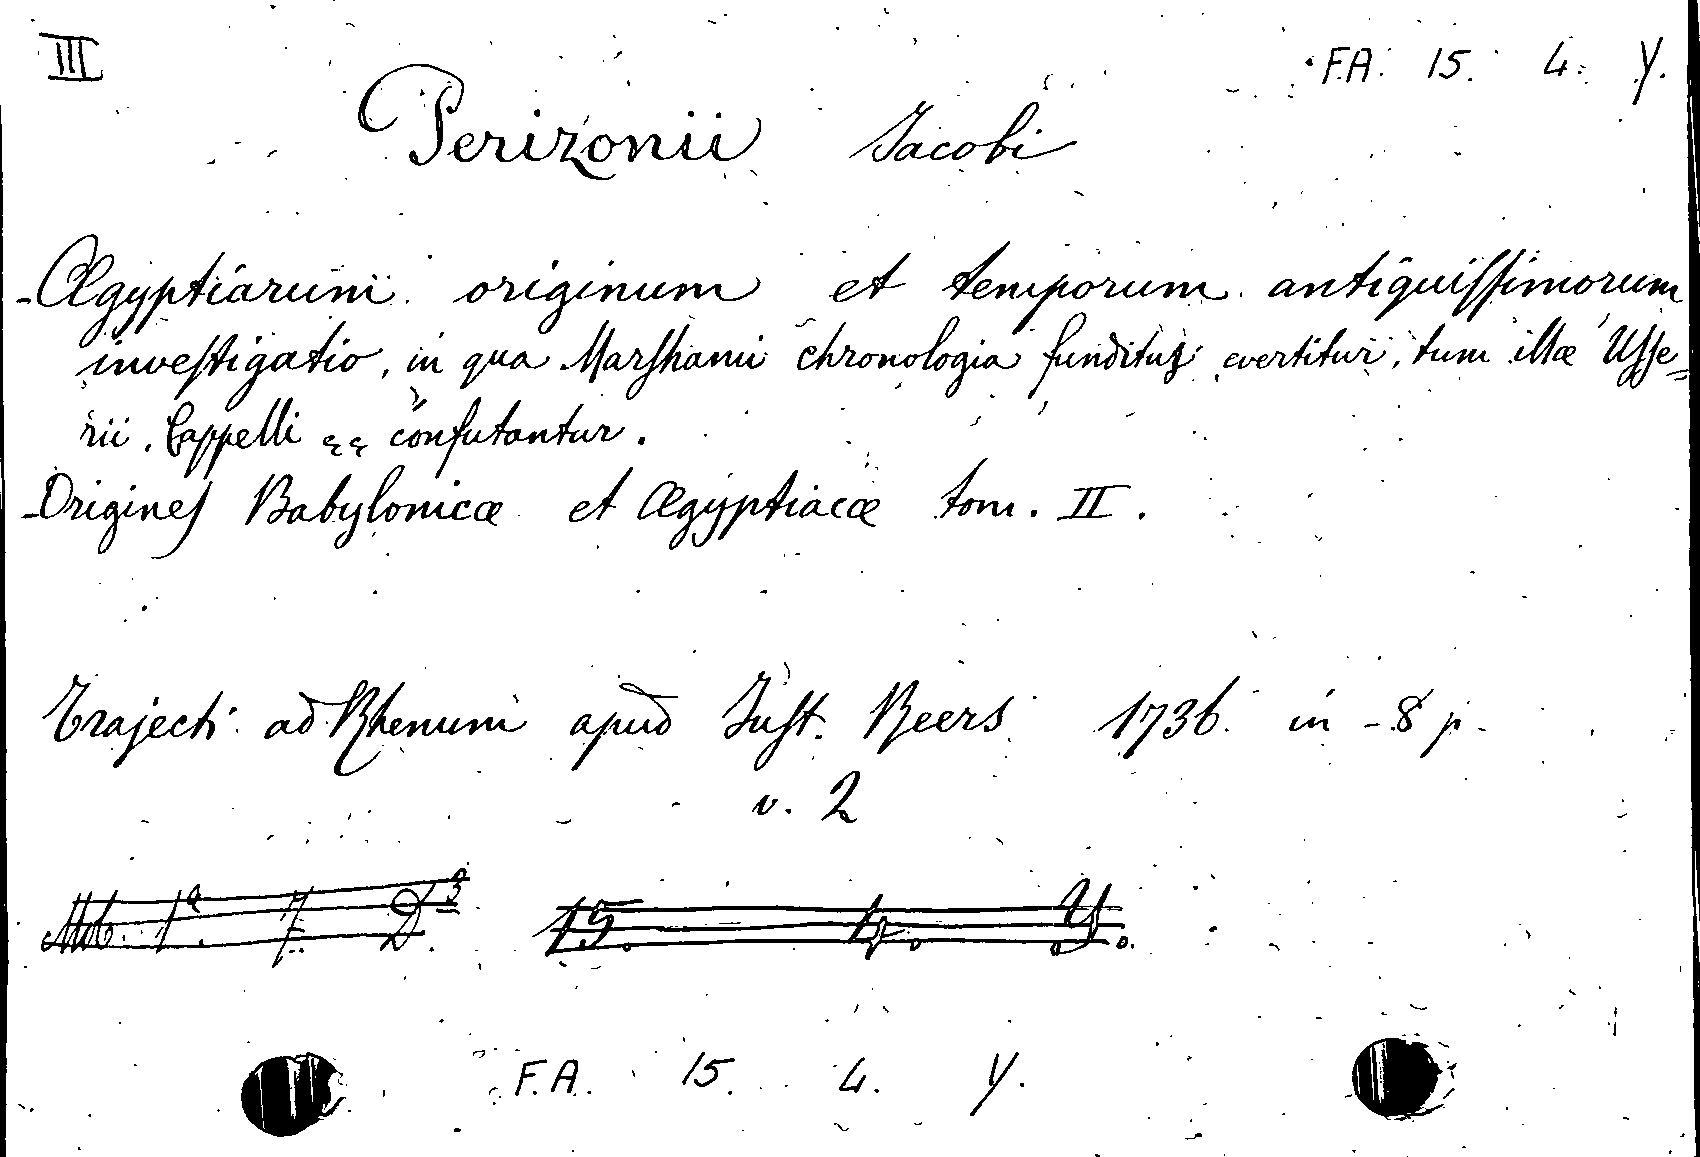 III
F.A. 15. 4. Y.
Perizonii Jacobi
-Ægyptiarum originum et temporum antiquissimorum
investigatio, in qua Marshami chronologia funditus evertitur, tum illæ Usse=
rii, Cappelli &c confutantur.
-Origines Babylonicæ et Ægyptiacæ tom. II.
Trajecti ad Rhenum apud Just. Reers 1736 in-8 p.
v. 2
1ª. 7. D³. 15. 4. Y.
F.A. 15. 4. Y.